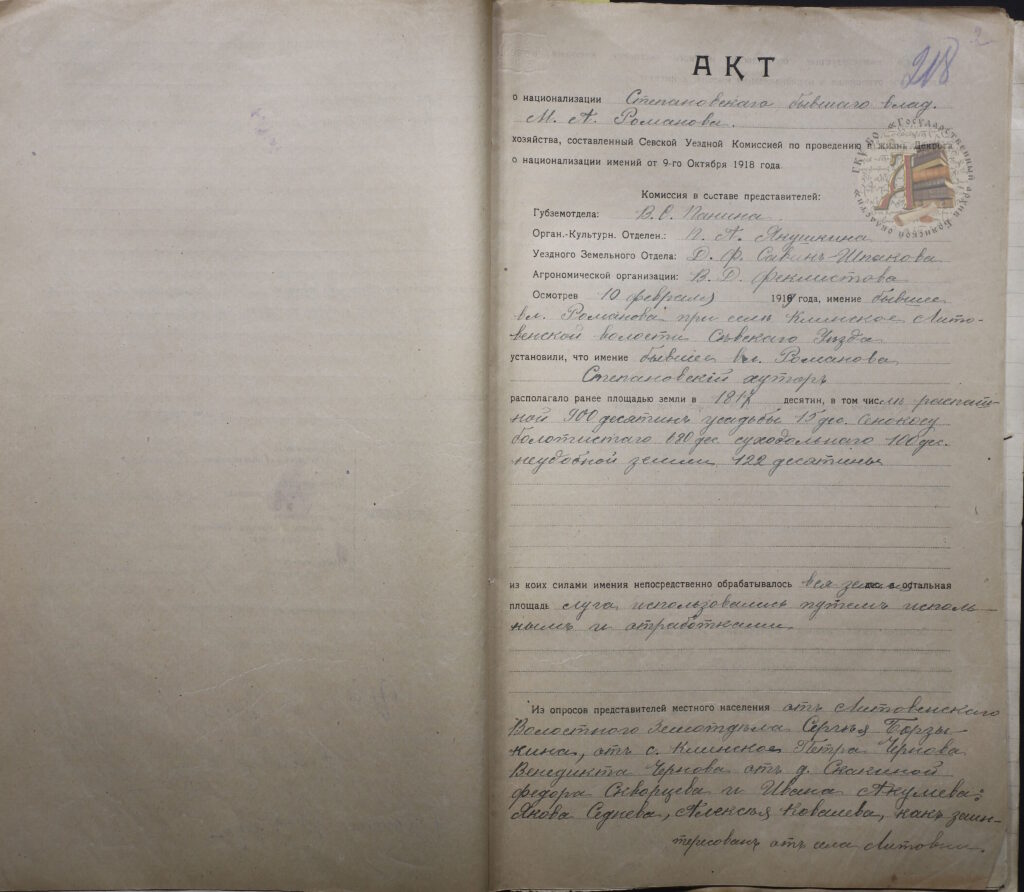 218
2
АКТ
о национализации Степановскаго бывшаго влад.
М. А. Романова.
хозяйства, составленный Севской Уездной Комиссией по проведению в жизнь Декрета
о национализации имений от 9-го Октября 1918 года.
Комиссия в составе представителей:
Губземотдела: В. С. Панина.
Орган.-Культурн. Отделен.: П. А. Якушкина
Уездного Земельного Отдела: Д. Ф. Савинъ-Шпакова
Агрономической организации: В. Д. Феклистова
Осмотрев 10 февраля 1919 года, имение бывшее
вл. Романова при селѣ Клинское Лито-
венской волости Сѣвскаго Уѣзда
установили, что имение бывшее вл. Романова
Степановскій хуторъ
располагало ранее площадью земли в 1817 десятин, в том числѣ распаш-
ной 900 десятинъ усадьбы 15 дес. сенокосу
болотистаго 680 дес суходольнаго 100 дес.
неудобной земли 122 десятины
из коих силами имения непосредственно обрабатывалось вся земля а остальная
площадь луга использовались путемъ исполь-
нымъ и отработками
Из опросов представителей местного населения отъ Литовенскаго
Волостного Земотдѣла Сергѣя Борзы-
кина, отъ с. Клинское Петра Чернова
Венедикта Чернова отъ д. Скакиной
Федора Скворцева и Ивана Акулева:
Якова Седнева, Алексѣя Ковалева, какъ заин-
тересован отъ села Литовни.
ГКУБО «Государственный архив Брянской области»